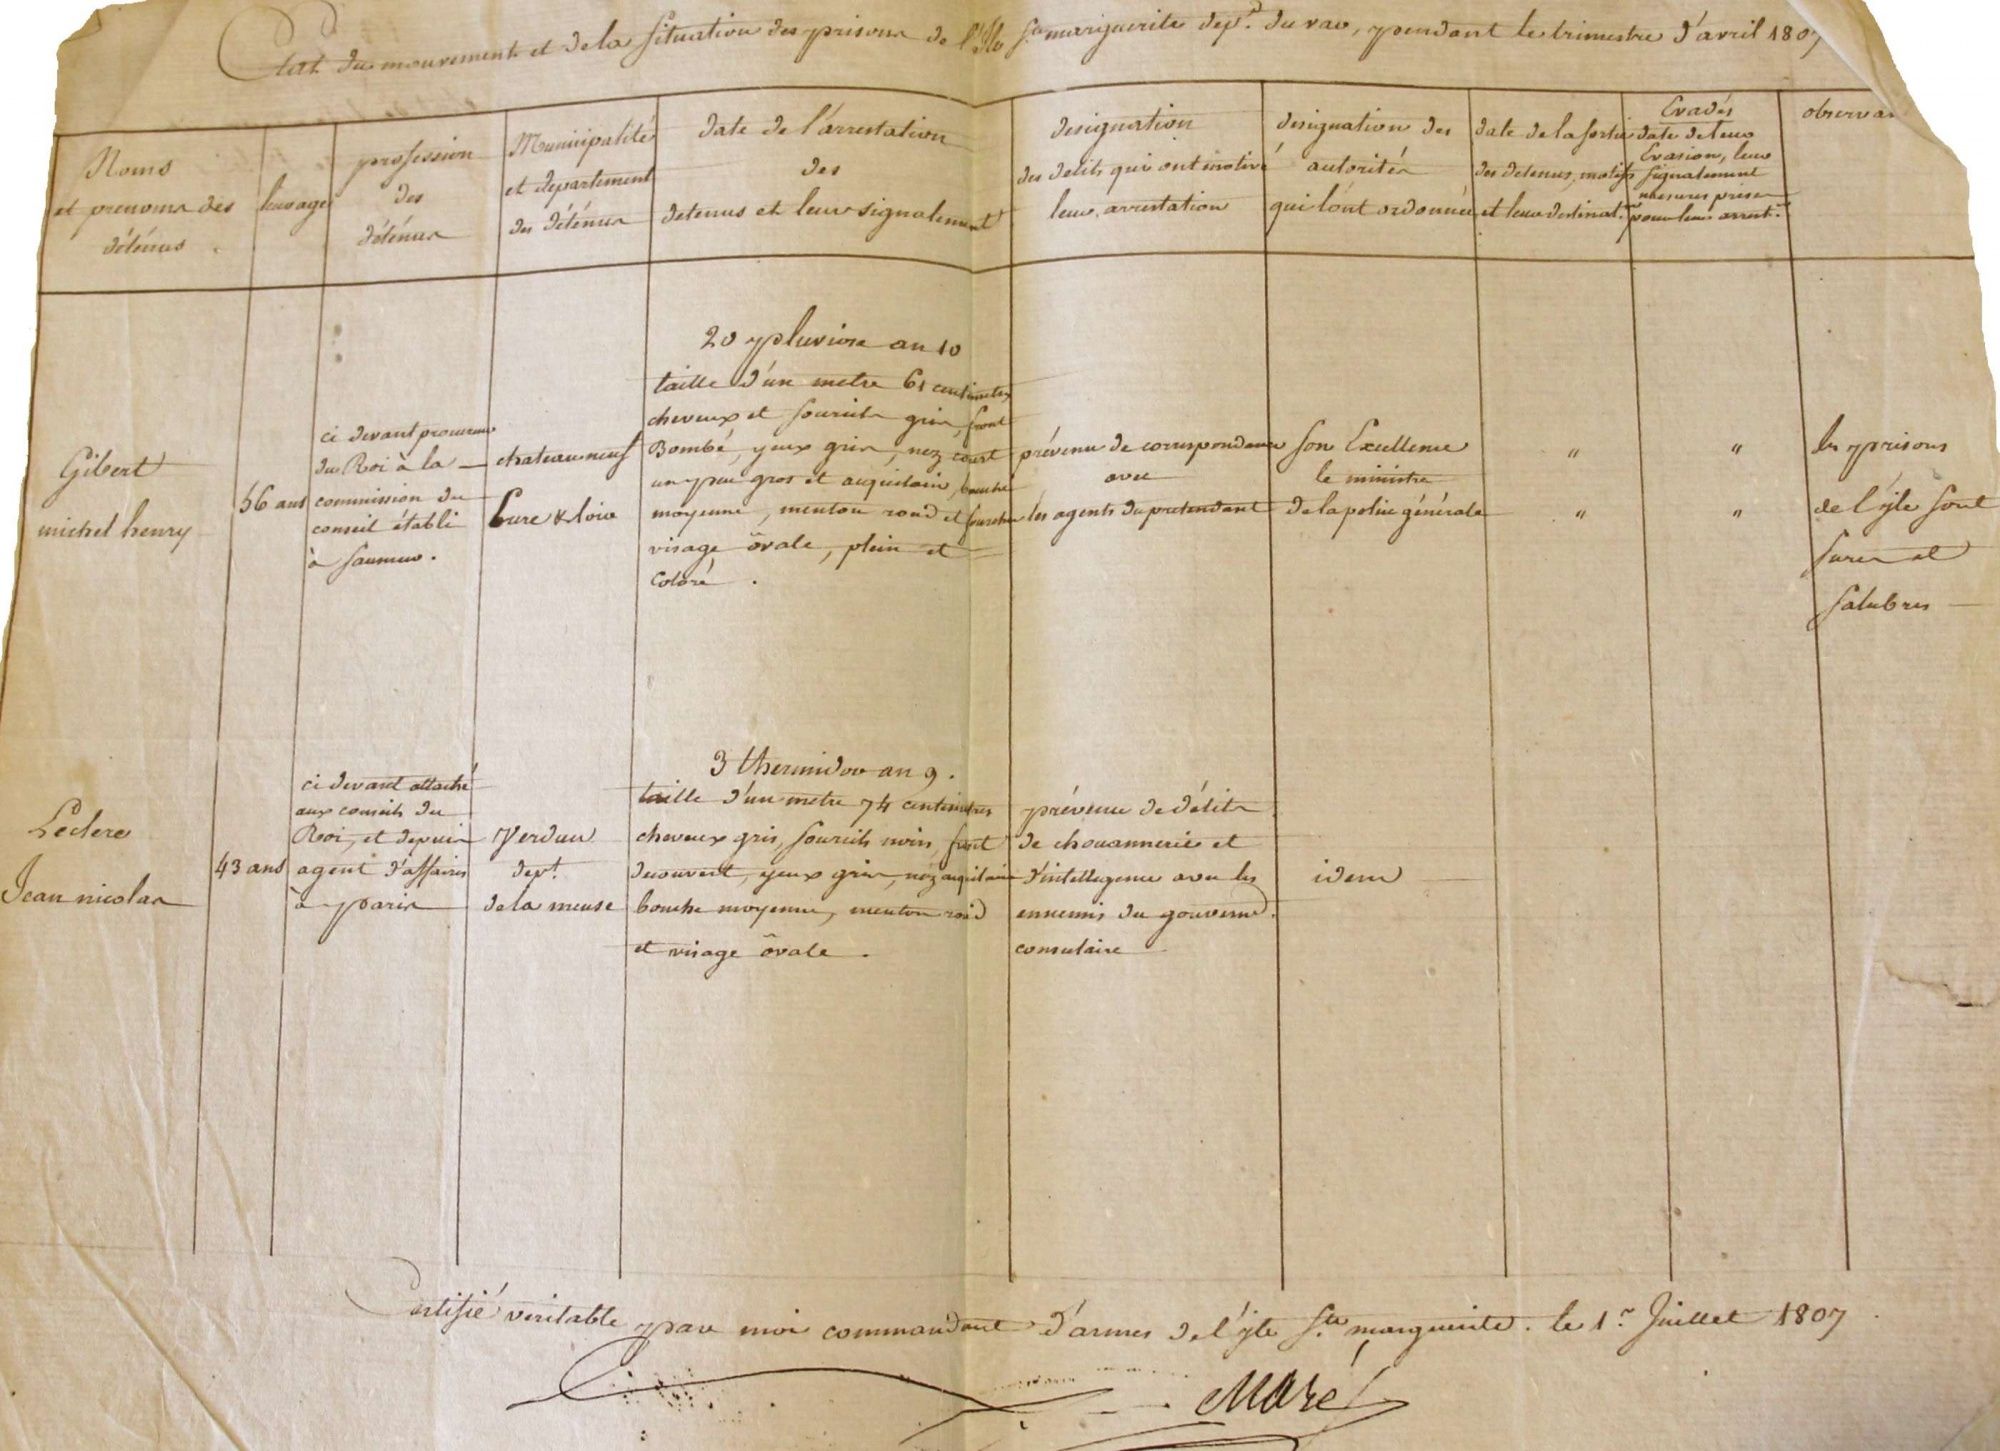 Etat du mouvement et de la Situation des prisons de l'Ile Ste marguerite dept. du var, pendant le trimestre d'avril 1807
Noms
et prenoms des
détenus.
leur age
profession
des
détenus
Municipalité
et departement
des détenus
date de l'arrestation
des
detenus et leur signalement
designation
des delits qui ont motivé
leur arrestation
designation des
autorités
qui l'ont ordonnée
date de la sortie
des detenus, motifs
et leur destinat.on
Evadés
date de leur
Evasion, leur
signalement
mesures prises
pour leur arrest.on
observa
Gibert
michel henry
56 ans
ci devant procureur
du Roi à la
commission du
conseil établi
à Saumur.
chateauneuf
Eure & loir
20 pluviose an 10
taille d'un metre 61 centimetres
cheveux et sourcils gris, front
Bombé, yeux gris, nez court
un peu gros et aquilain, bouche
moyenne, menton rond et fourchu
visage ôvale, plein et
coloré.
prévenu de correspondance
avec
les agents du pretendant
Son Excellence
le ministre
de la police générale
"
"
"
"
les prisons
de l'yle sont
sures et
salubres
Leclerc
Jean nicolas
43 ans
ci devant attaché
aux conseils du
Roi, et depuis
agent d'affaires
à paris
Verdun
dept.
de la meuse
3 thermidor an 9.
taille d'un metre 74 centimetres
cheveux gris, sourcils noirs, front
decouvert, yeux gris, nez aquilain
bouche moyenne, menton rond
et visage ôvale.
prévenu de délits
de chouannerie et
d'intelligence avec les
ennemis du gouvernt.
consulaire
idem
Certifié veritable par moi commandant d'armes de l'yle Ste marguerite. le 1er Juillet 1807
Maré